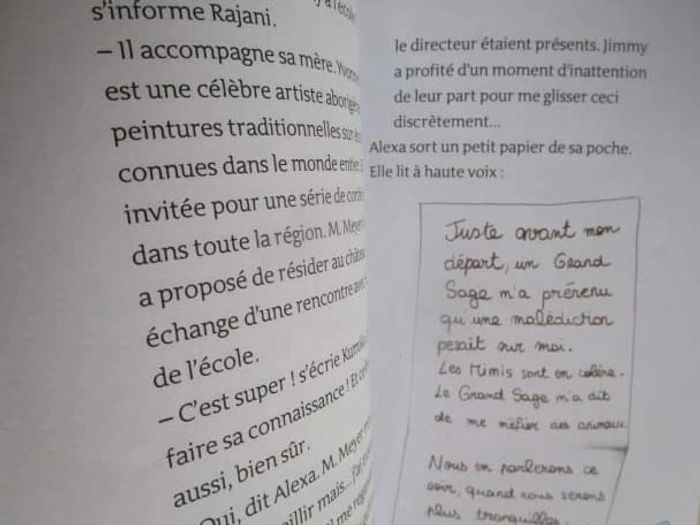 s'informe Rajani.
– Il accompagne sa mère.
est une célèbre artiste
peintures traditionnelles
connues dans le monde
invitée pour une série de
dans toute la région. M. Meyer
a proposé de résider au
échange d'une rencontre
de l'école.
– C'est super ! s'écrie
faire sa connaissance ! Et
aussi, bien sûr.
Oui, dit Alexa. M. Meyer
mais...
le directeur étaient présents. Jimmy
a profité d'un moment d'inattention
de leur part pour me glisser ceci
discrètement...
Alexa sort un petit papier de sa poche.
Elle lit à haute voix :
Juste avant mon
départ, un Grand
Sage m'a prévenu
qu'une malédiction
pesait sur moi.
Les Mimis sont en colère.
Le Grand Sage m'a dit
de me méfier des animaux.
Nous en parlerons ce
soir, quand nous serons
plus tranquilles